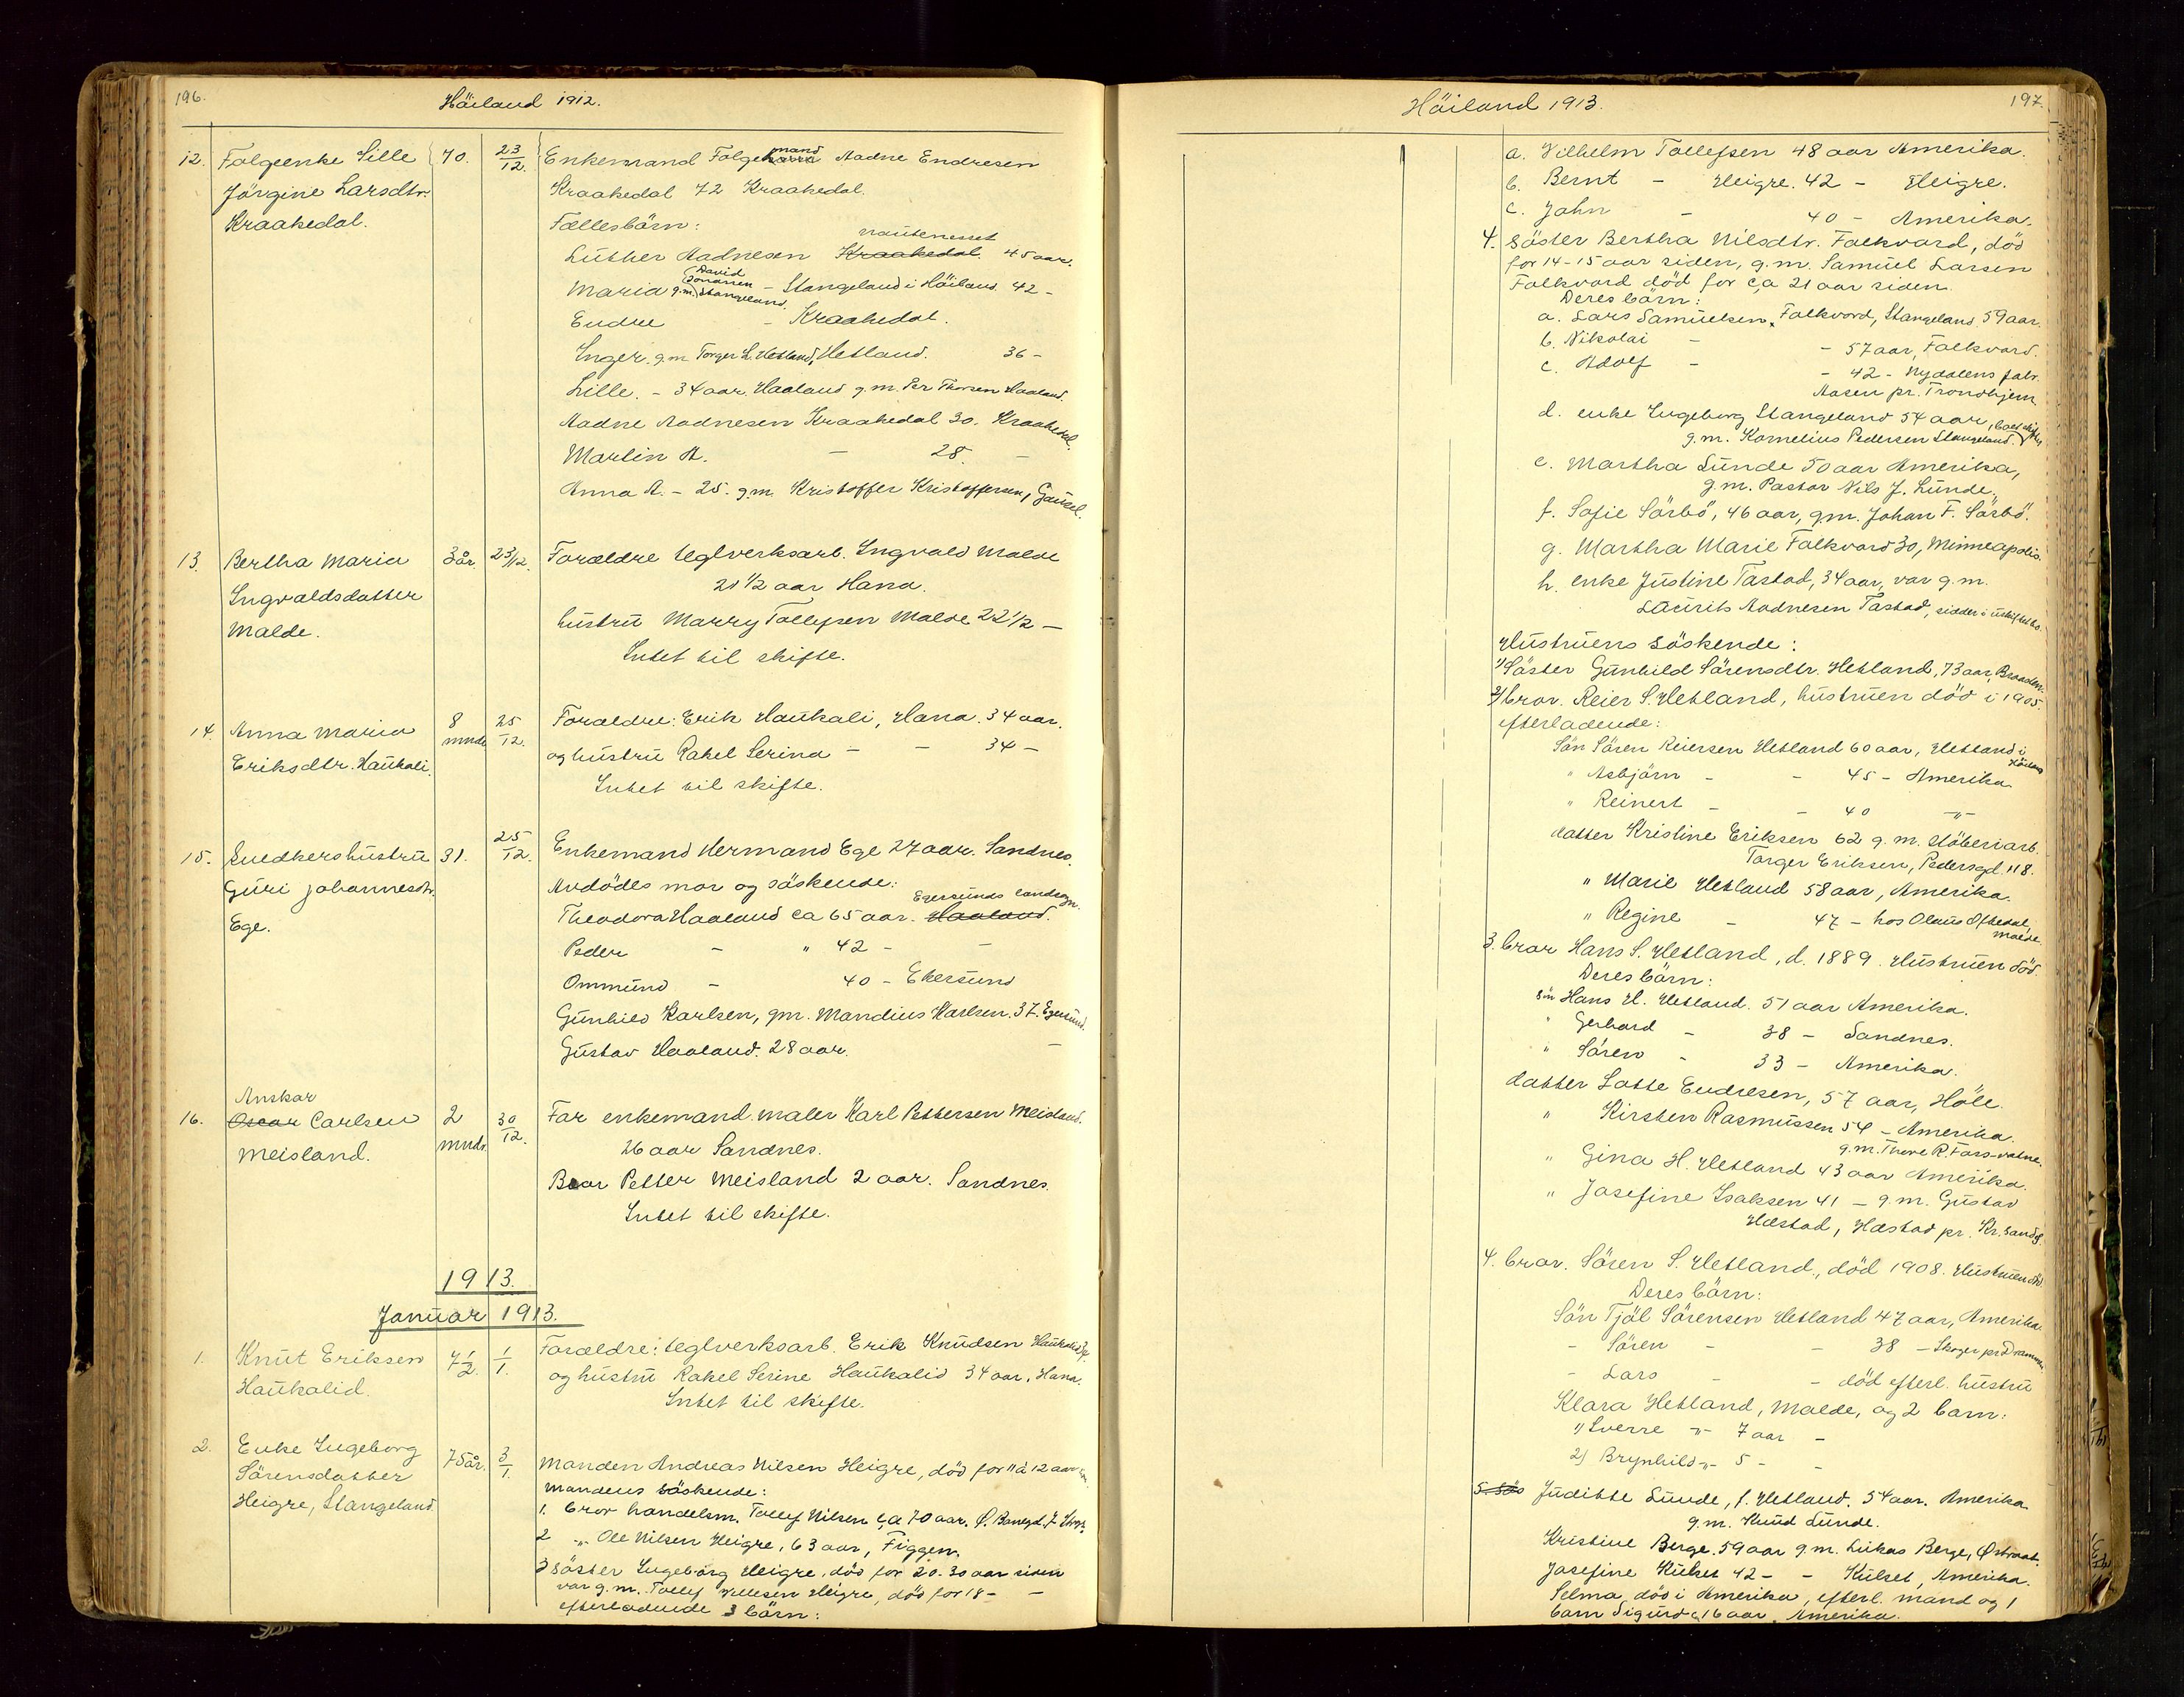 196.
Höiland 1912.
12. Folgeenke Sille 70. 23/12. Enkemand Folgemand Aadne Endresen
Jörgine Larsdtr. Kraakedal 72 Kraakedal.
Kraakedal. Fællesbörn:
Nautenesset
Luther Aadnesen Kraakedal. 45 aar.
David
Jonassen
Maria g.m. Stangeland. - Stangeland i Höiland. 42 -
Endre - Kraakedal.
Inger. g.m. Torger L. Hetland, Hetland. 36 -
Lille. - 34 aar. Haaland g.m. Per Thorsen Haaland.
Aadne Aadnesen Kraakedal 30. Kraakedal.
Martin A. - 28. -
Anna A. - 25. g.m. Kristoffer Kristoffersen, Gausel.
13. Bertha Maria 3 år. 23/12. Forældre teglverksarb. Ingvald Malde
Ingvaldsdatter 21 1/2 aar Hana.
Malde. hustru Marry Tollefsen Malde 22 1/2 -
Intet til skifte.
14. Anna Maria 8 mndr 25/12. Forældre: Erik Haukali, Hana. 34 aar.
Eriksdtr. Haukali. og hustru Rakel Serina - - 34 -
Intet til skifte.
15. Snedkershustru 31. 25/12. Enkemand Hermand Ege 27 aar. Sandnes.
Guri Johannesdtr. Avdödes mor og söskende:
Ege. Egersunds landsogn.
Theodora Haaland ca 65 aar. Haaland.
Peder - " 42 - -
Ommund - 40 - Ekersund
Gunhild Karlsen, gm. Mandius Karlsen. 37. Egersund.
Gustav Haaland. 28 aar. -
Anskar
16. Oscar Carlsen 2 mndr. 30/12. Far enkemand maler Karl Pettersen Meisland.
Meisland. 26 aar Sandnes.
Bror Petter Meisland 2 aar. Sandnes.
Intet til skifte.
1913.
Januar 1913.
1. Knut Eriksen 7 1/2. 1/1. Forældre: teglverksarb. Erik Knudsen Haukalid
Haukalid. og hustru Rakel Serine Haukalid 34 aar. Hana.
Intet til skifte.
2. Enke Ingeborg 75 år. 3/1. Manden Andreas Nilsen Heigre, död for 11 à 12 aar
Sörensdatter Mandens söskende:
Heigre, Stangeland. 1. bror handelsm. Tollef Nilsen ca 70 aar.
2 " Ole Nilsen Heigre, 63 aar, Figgen.
3 söster Ingeborg Heigre, död for 20-30 aar siden
var g.m. Tollef Heigre, död for 18 - -
efterladende 3 börn:
Höiland 1913.
197.
a. Vilhelm Tollefsen 48 aar Amerika.
b. Bernt - Heigre. 42 - Heigre.
c. John - 40 - Amerika.
4. söster Bertha Nilsdtr. Folkvard, död
for 14-15 aar siden, g.m. Samuel Larsen
Folkvord död for ca 21 aar siden.
Deres börn:
a. Lars Samuelsen Folkvord, Stangeland 59 aar.
b. Nikolai - - 57 aar, Folkvord.
c. Adolf - - 42 - Nydalens fabr.
Aasen pr. Trondhjem
d. enke Ingeborg Stangeland 54 aar,
g.m. Kornelius Pedersen Stangeland.
e. Martha Lunde 50 aar Amerika,
g.m. Pastor Nils J. Lunde.
f. Sofie Sörbö, 46 aar, gm. Johan F. Sörbö.
g. Martha Marie Folkvord 30, Minneapolis.
h. enke Justine Tastad, 34 aar, var g.m.
Laurits Aadnesen Tastad, sidder i uskiftet bo.
Hustruens söskende:
1) Söster Gunhild Sörensdtr. Hetland, 73 aar,
2) bror. Reier S. Hetland, hustruen död i 1905.
efterladende:
Sön Sören Reiersen Hetland 60 aar, Hetland i
Höiland
" Asbjörn - - 45 - Amerika.
" Reinert - - 40 -"-
datter Kristine Eriksen 62 g.m. Stöberiarb.
Torger Eriksen, Pedersgd. 118.
" Marie Hetland 58 aar, Amerika.
" Regine - 47 - hos Olaus Oftedal,
Malde.
3. bror Hans S. Hetland, d. 1889. Hustruen död.
Deres börn:
sön Hans H. Hetland. 51 aar Amerika.
" Gerhard - 38 - Sandnes.
" Sören - 33 - Amerika.
datter Lotte Endresen, 57 aar, Höle.
" Kirsten Rasmussen 54 - Amerika.
g.m. R.
" Gina H. Hetland 43 aar Amerika.
" Josefine Isaksen 41 - g.m. Gustav
Hæstad, Hæstad pr. Kr. sand S.
4. bror. Sören S. Hetland, död 1908. Hustruen död
Deres börn:
Sön Tjöl Sörensen Hetland 47 aar, Amerika.
- Sören - - 38 - Skoger pr. Drammen
- Lars - - död efterl. hustru
Klara Hetland, Malde, og 2 barn:
1) Sverre -"- 7 aar -
2) Brynhild -"- 5 - -
5. sös Judithe Lunde, f. Hetland. 54 aar. Amerika
g.m. Knud Lunde.
Kristine Berge. 59 aar g.m. Lukas Berge, Østraat.
Josefine Kulset 42 - - Kulset, Amerika.
Selma, död i Amerika, efterl. mand og 1
barn Sigurd ca 16 aar, Amerika.